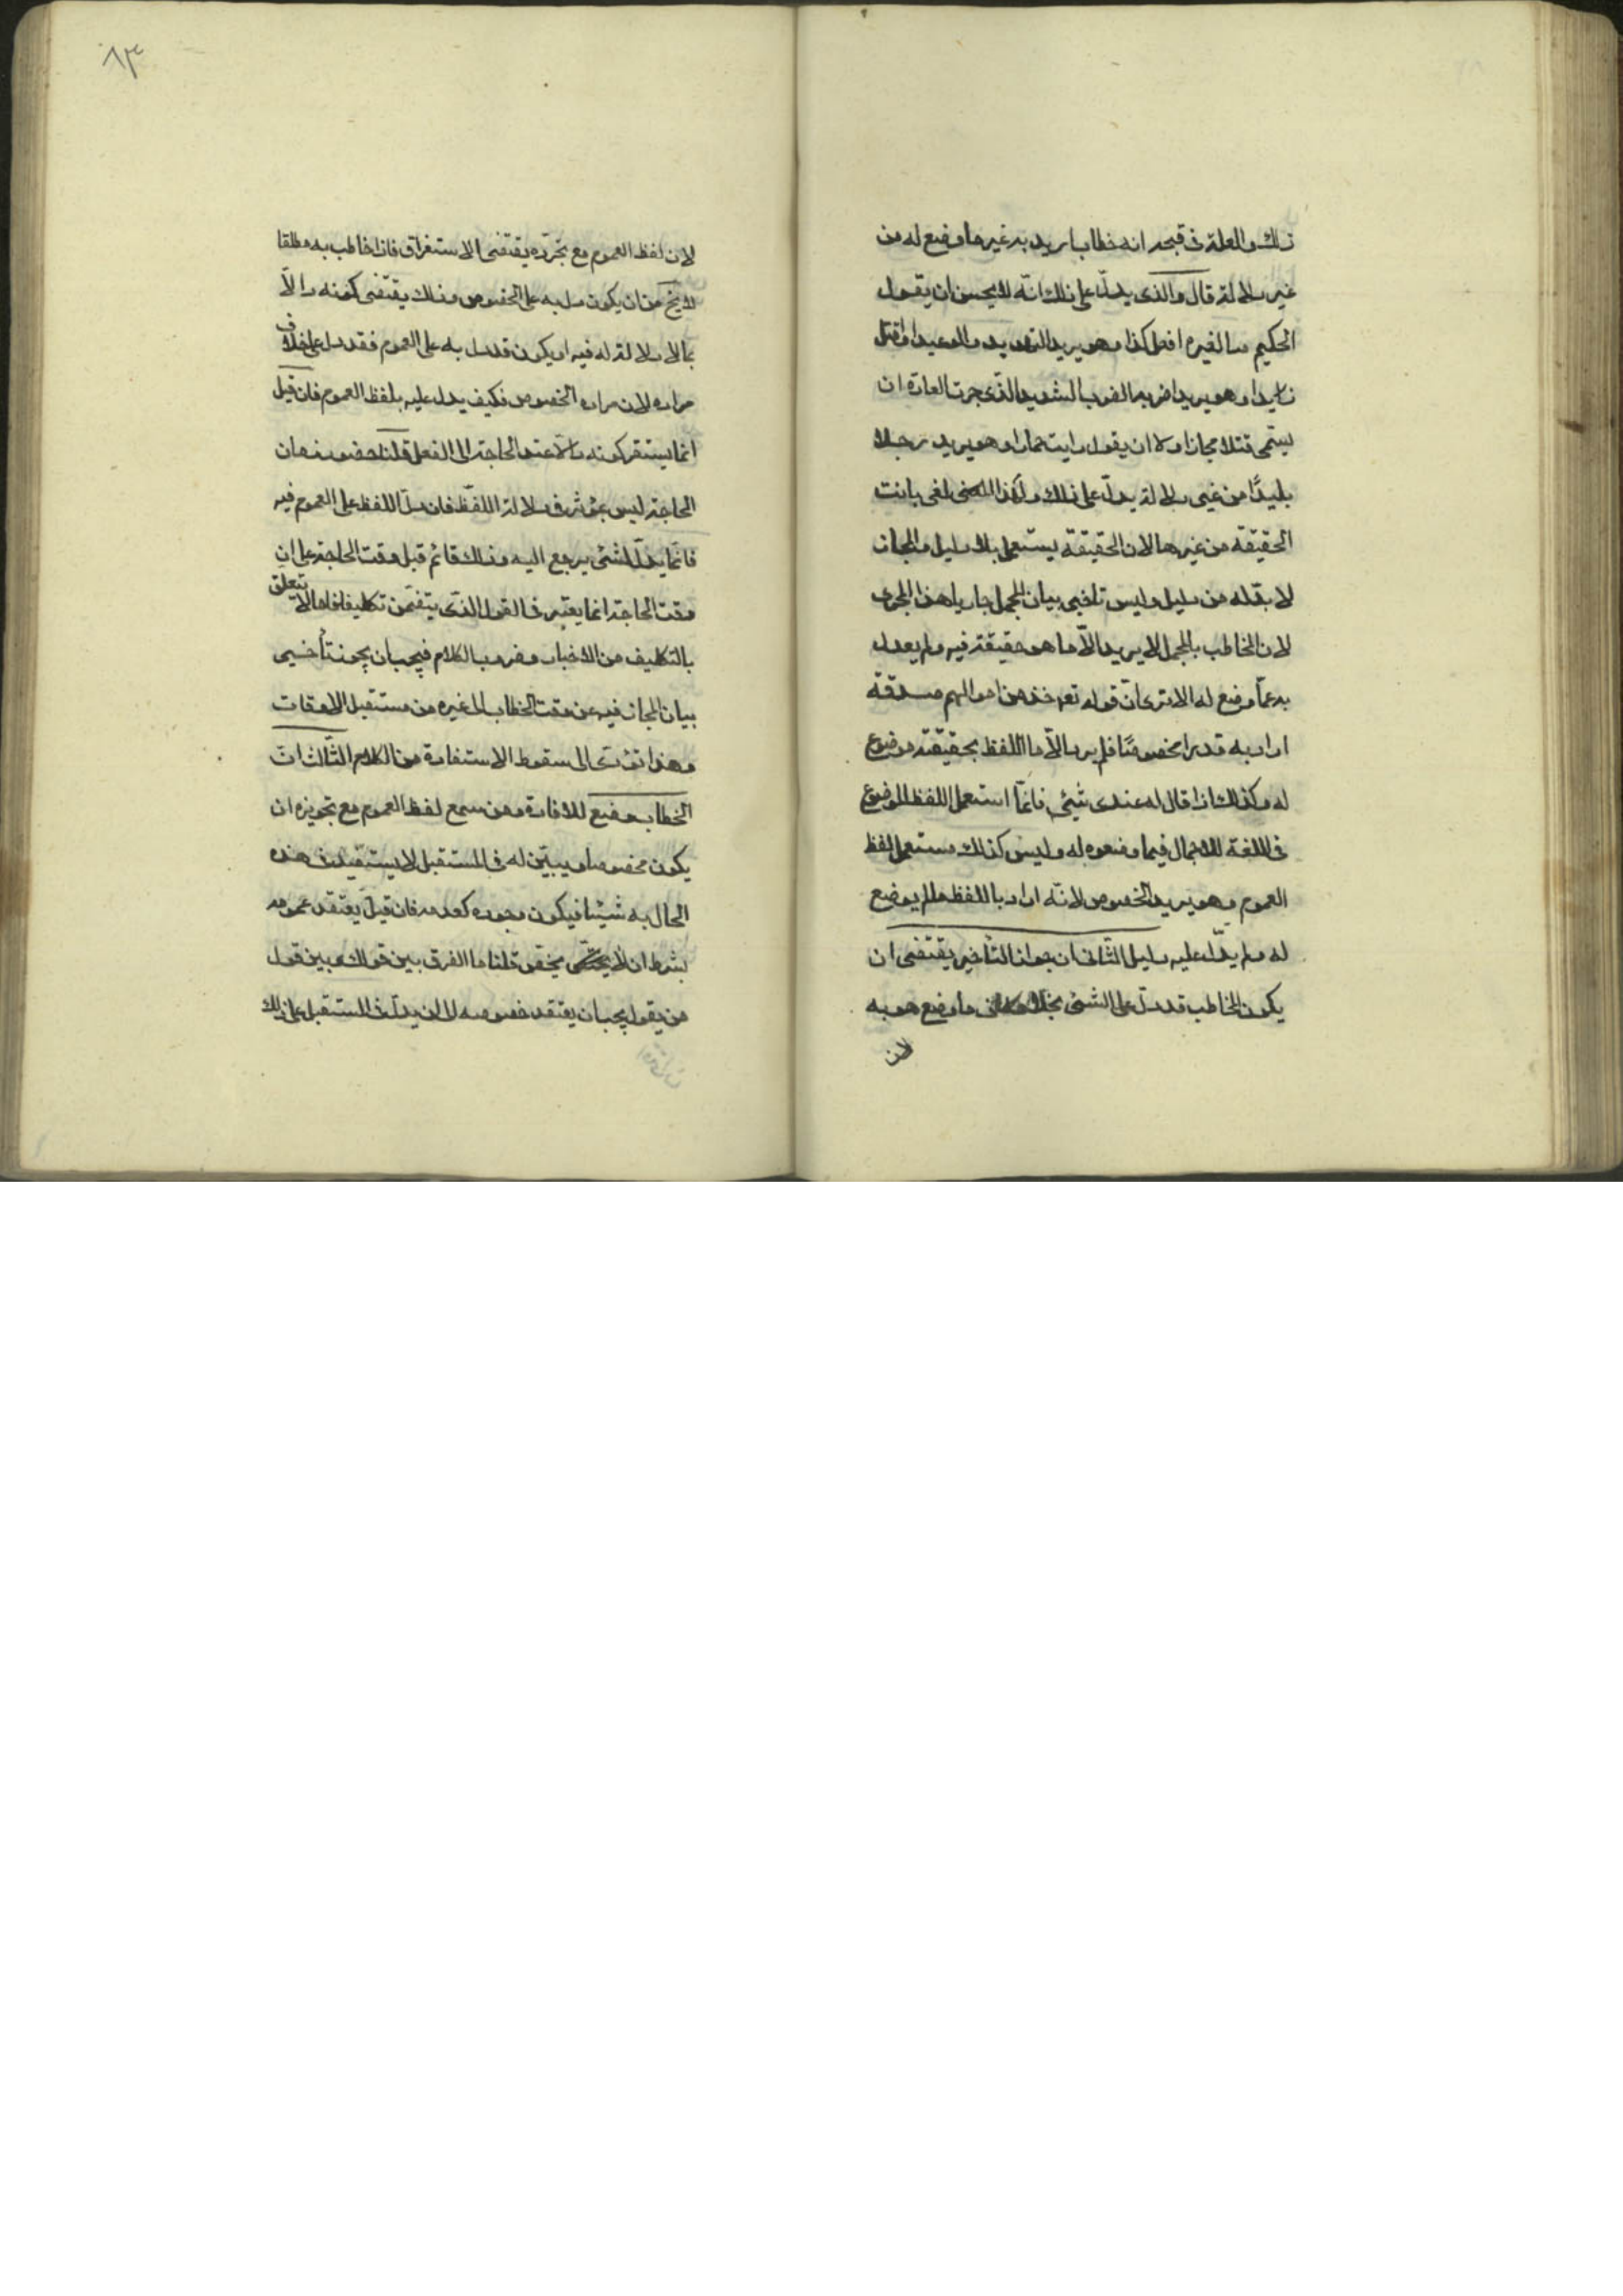 ذلك والعلة فى قبحه انه خطاب اريد به غير ما وضع له من
غير دلالة قال والذى يدلّ على ذلك انّه لا يحسن ان يقول
الحكيم منا لغيره افعل كذا وهو يريد التهديد والوعيد او اقتل
زيدا وهو يريد اضربه الضرب الشديد الذى جرت العادة ان
يسمّى قتلا مجازا ولا ان يقول رايت حمارا وهو يريد رجلا
بليدًا من غير دلالة يدلّ على ذلك ولهذا المعنى بانت
الحقيقة من غيرها لان الحقيقة يستعمل بلا دليل والمجاز
لا بدّ له من دليل وليس تاخير بيان المجمل جاريا هذا المجرى
لان المخاطب بالمجمل لا يريد الاّ ما هو حقيقة فيه ولم يعدل
به عمّا وضع له الا ترى انّ قوله تعه خذ من اموالهم صدقة
اراد به قدرا مخصوصًا فلم يرد الاّ ما اللفظ بحقيقته موضوع
له وكذلك اذا قال له عندى شيئى فانمّا استعمل اللفظ الموضوع
فى اللغة للاجمال فيما وضعوه له وليس كذلك مستعمل لفظ
العموم وهو يريد الخصوص لانّه اراد باللفظ ما لم يوضع
له ولم يدلّ عليه دليل الثانى ان جواز التأخير يقتضى ان
يكون المخاطب قد دلّ على الشئ بخلاف ما وضع هو به
لان
٨٣
لان لفظ العموم مع تجرّده يقتضى الاستغراق فاذا خاطب به مطلقا
لا يخ من ان يكون دل به على الخصوص وذلك يقتضى كونه دالاّ
بما لا دلالة له فيه او يكون قد دل به على العموم فقد دل على خلاف
مراده لان مراده الخصوص فكيف يدل عليه بلفظ العموم فان قيل
انما يستقر كونه دالاّ عند الحاجة الى الفعل قلنا حضور زمان
الحاجة ليس بمؤثر فى دلالة اللفظ فان دلّ اللفظ على العموم فيه
فانّما يدلّ لشئ يرجع اليه وذلك قائم قبل وقت الحاجة على ان
وقت الحاجة انما يعتبر فى القول الذى يتضمن تكليفا فاما ما لا يتعلق
بالتكليف من الاخبار وضروب الكلام فيجب ان يجوز تأخير
بيان المجاز فيه عن وقت الخطاب الى غيره من مستقبل الاوقات
وهذا تؤدى الى سقوط الاستفادة من الكلام الثّالث ان
الخطاب وضع للافادة ومن سمع لفظ العموم مع تجويزه ان
يكون مخصوصا ويبيّن له فى المستقبل لا يستفيد فى هذه
الحال به شيئا فيكون وجوده كعدمه فان قيل يعتقد عمومه
بشرط ان لا يخصّ قلنا ما الفرق بين قولك وبين قول
من يقول يجب ان يعتقد خصوصه الى ان يدلّ فى المستقبل على ذلك